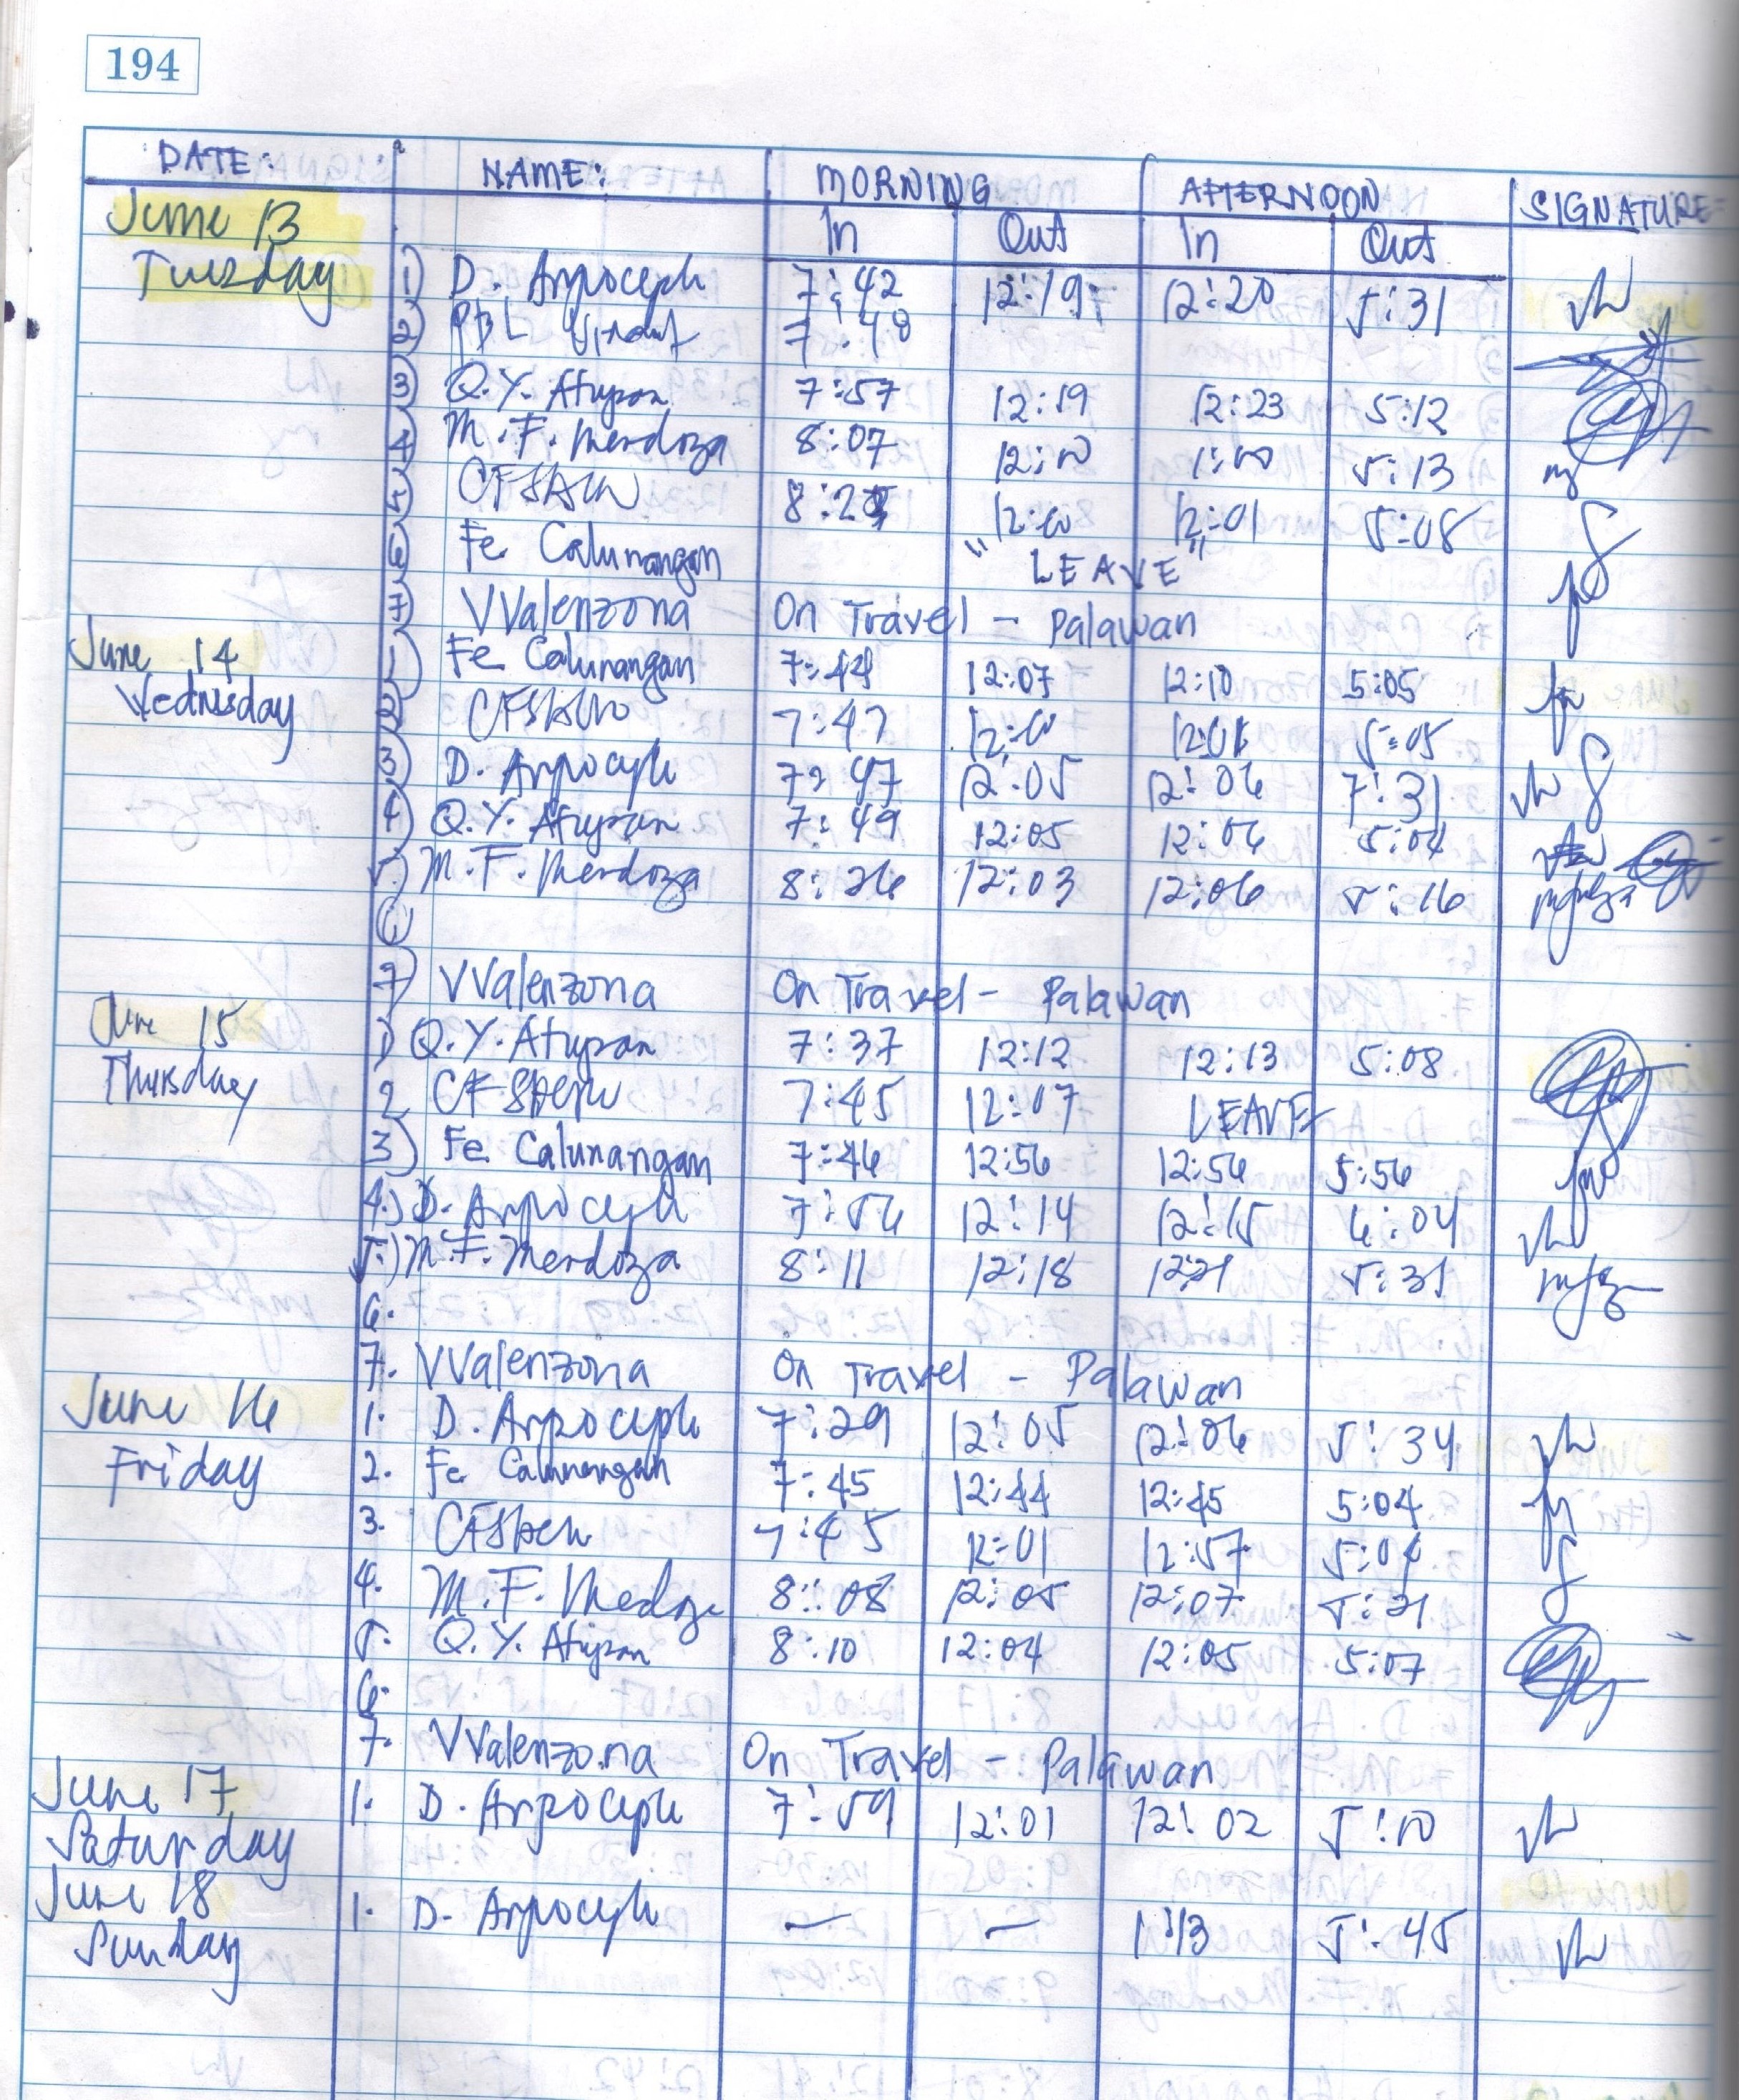 194
DATE: NAME: MORNING AFTERNOON SIGNATURE
In Out In Out
June 13
Tuesday 1) D. 7:42 12:19 12:20 5:31
2) 7:48
3) Q.Y. Atupan 7:57 12:19 12:23 5:12
4) M.F. Mendoza 8:07 12:00 1:00 5:13
5) 12:00 12:01 5:08
6) Fe Calunangan "LEAVE"
7) VValenzona On Travel - Palawan
June 14 1) Fe Calunangan 7:44 12:07 12:10 5:05
Wednesday 2) 7:47 12:00 12:01 5:05
3) D. 7:47 12:05 12:06 7:31
4) Q.Y. Atupan 7:49 12:05 12:06 5:04
5.) M.F. Mendoza 8:26 12:03 12:06 5:16
6)
7) VValenzona On Travel - Palawan
June 15 1) Q.Y. Atupan 7:37 12:12 12:13 5:08
Thursday 2 7:45 12:07 LEAVE
3) Fe Calunangan 7:46 12:56 12:56 5:56
4.) D. 7:56 12:14 12:15 6:04
5.) M.F. Mendoza 8:11 12:18 12:21 5:31
6.
7. VValenzona On Travel - Palawan
June 16 1. D. 7:29 12:05 12:06 5:34
Friday 2. Fe Calunangan 7:45 12:44 12:45 5:04
3. 7:45 12:01 12:57 5:04
4. M.F. 8:08 12:05 12:07 5:21
5. Q.Y. Atupan 8:10 12:04 12:05 5:07
6.
7. VValenzona On Travel - Palawan
June 17 1. D. 7:59 12:01 12:02 5:10
Saturday
June 18 1. D. — — 1:13 5:45
Sunday